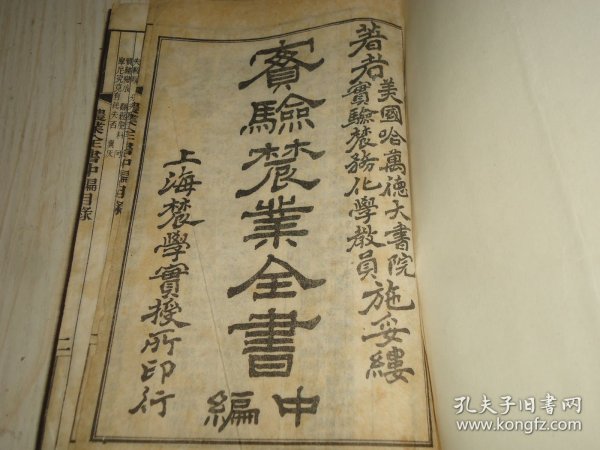 著者美國哈萬德大書院
實驗農務化學教員施妥縷
實驗農業全書
中編
上海農學實授所印行
農業全書中編目錄
二
孔夫子旧书网
www.kongfz.com